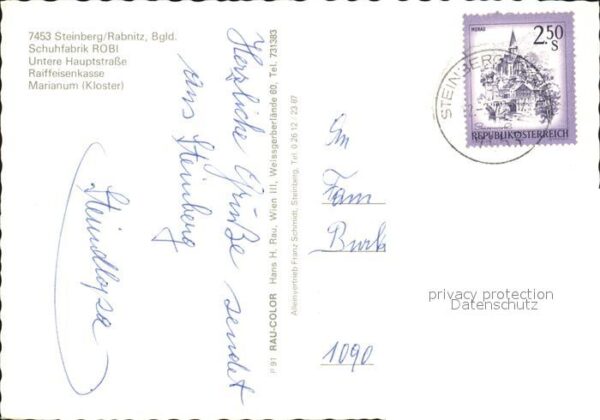 7453 Steinberg/Rabnitz, Bgld.
Schuhfabrik ROBI
Untere Hauptstraße
Raiffeisenkasse
Marianum (Kloster)
Herzliche Grüße sendet
aus Steinberg
P 91 RAU-COLOR Hans H. Rau, Wien III, Weissgerberlände 60, Tel. 731383
Alleinvertrieb Franz Schmidt, Steinberg, Tel. 0 26 12 23 67
2.50
S
REPUBLIK ÖSTERREICH
STEINBERG
Fam
1090
privacy protection
Datenschutz